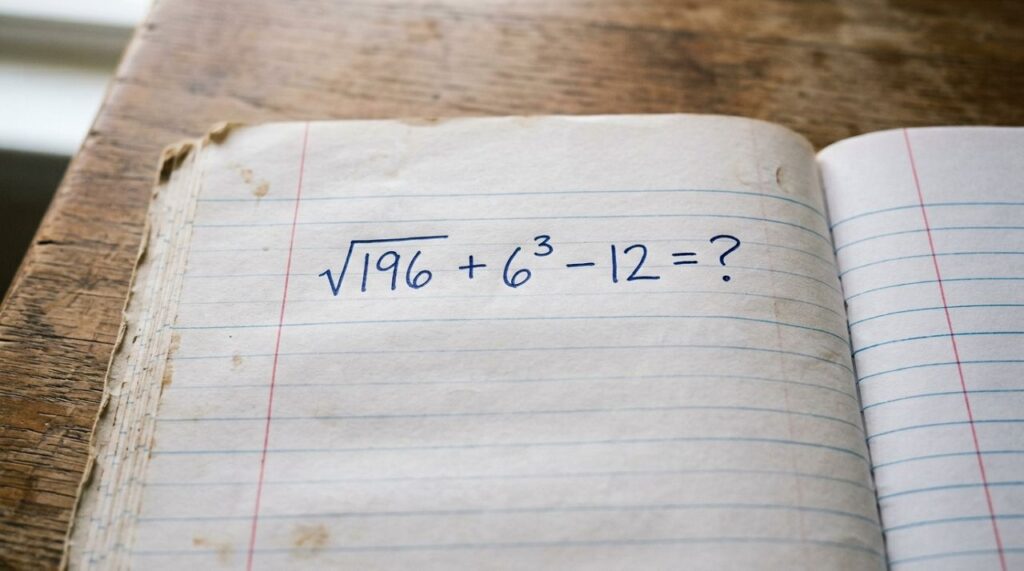 √196 + 6³ − 12 = ?